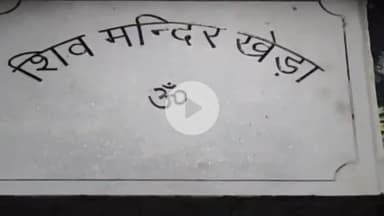 शिव मन्दिर खेड़ा
ॐ